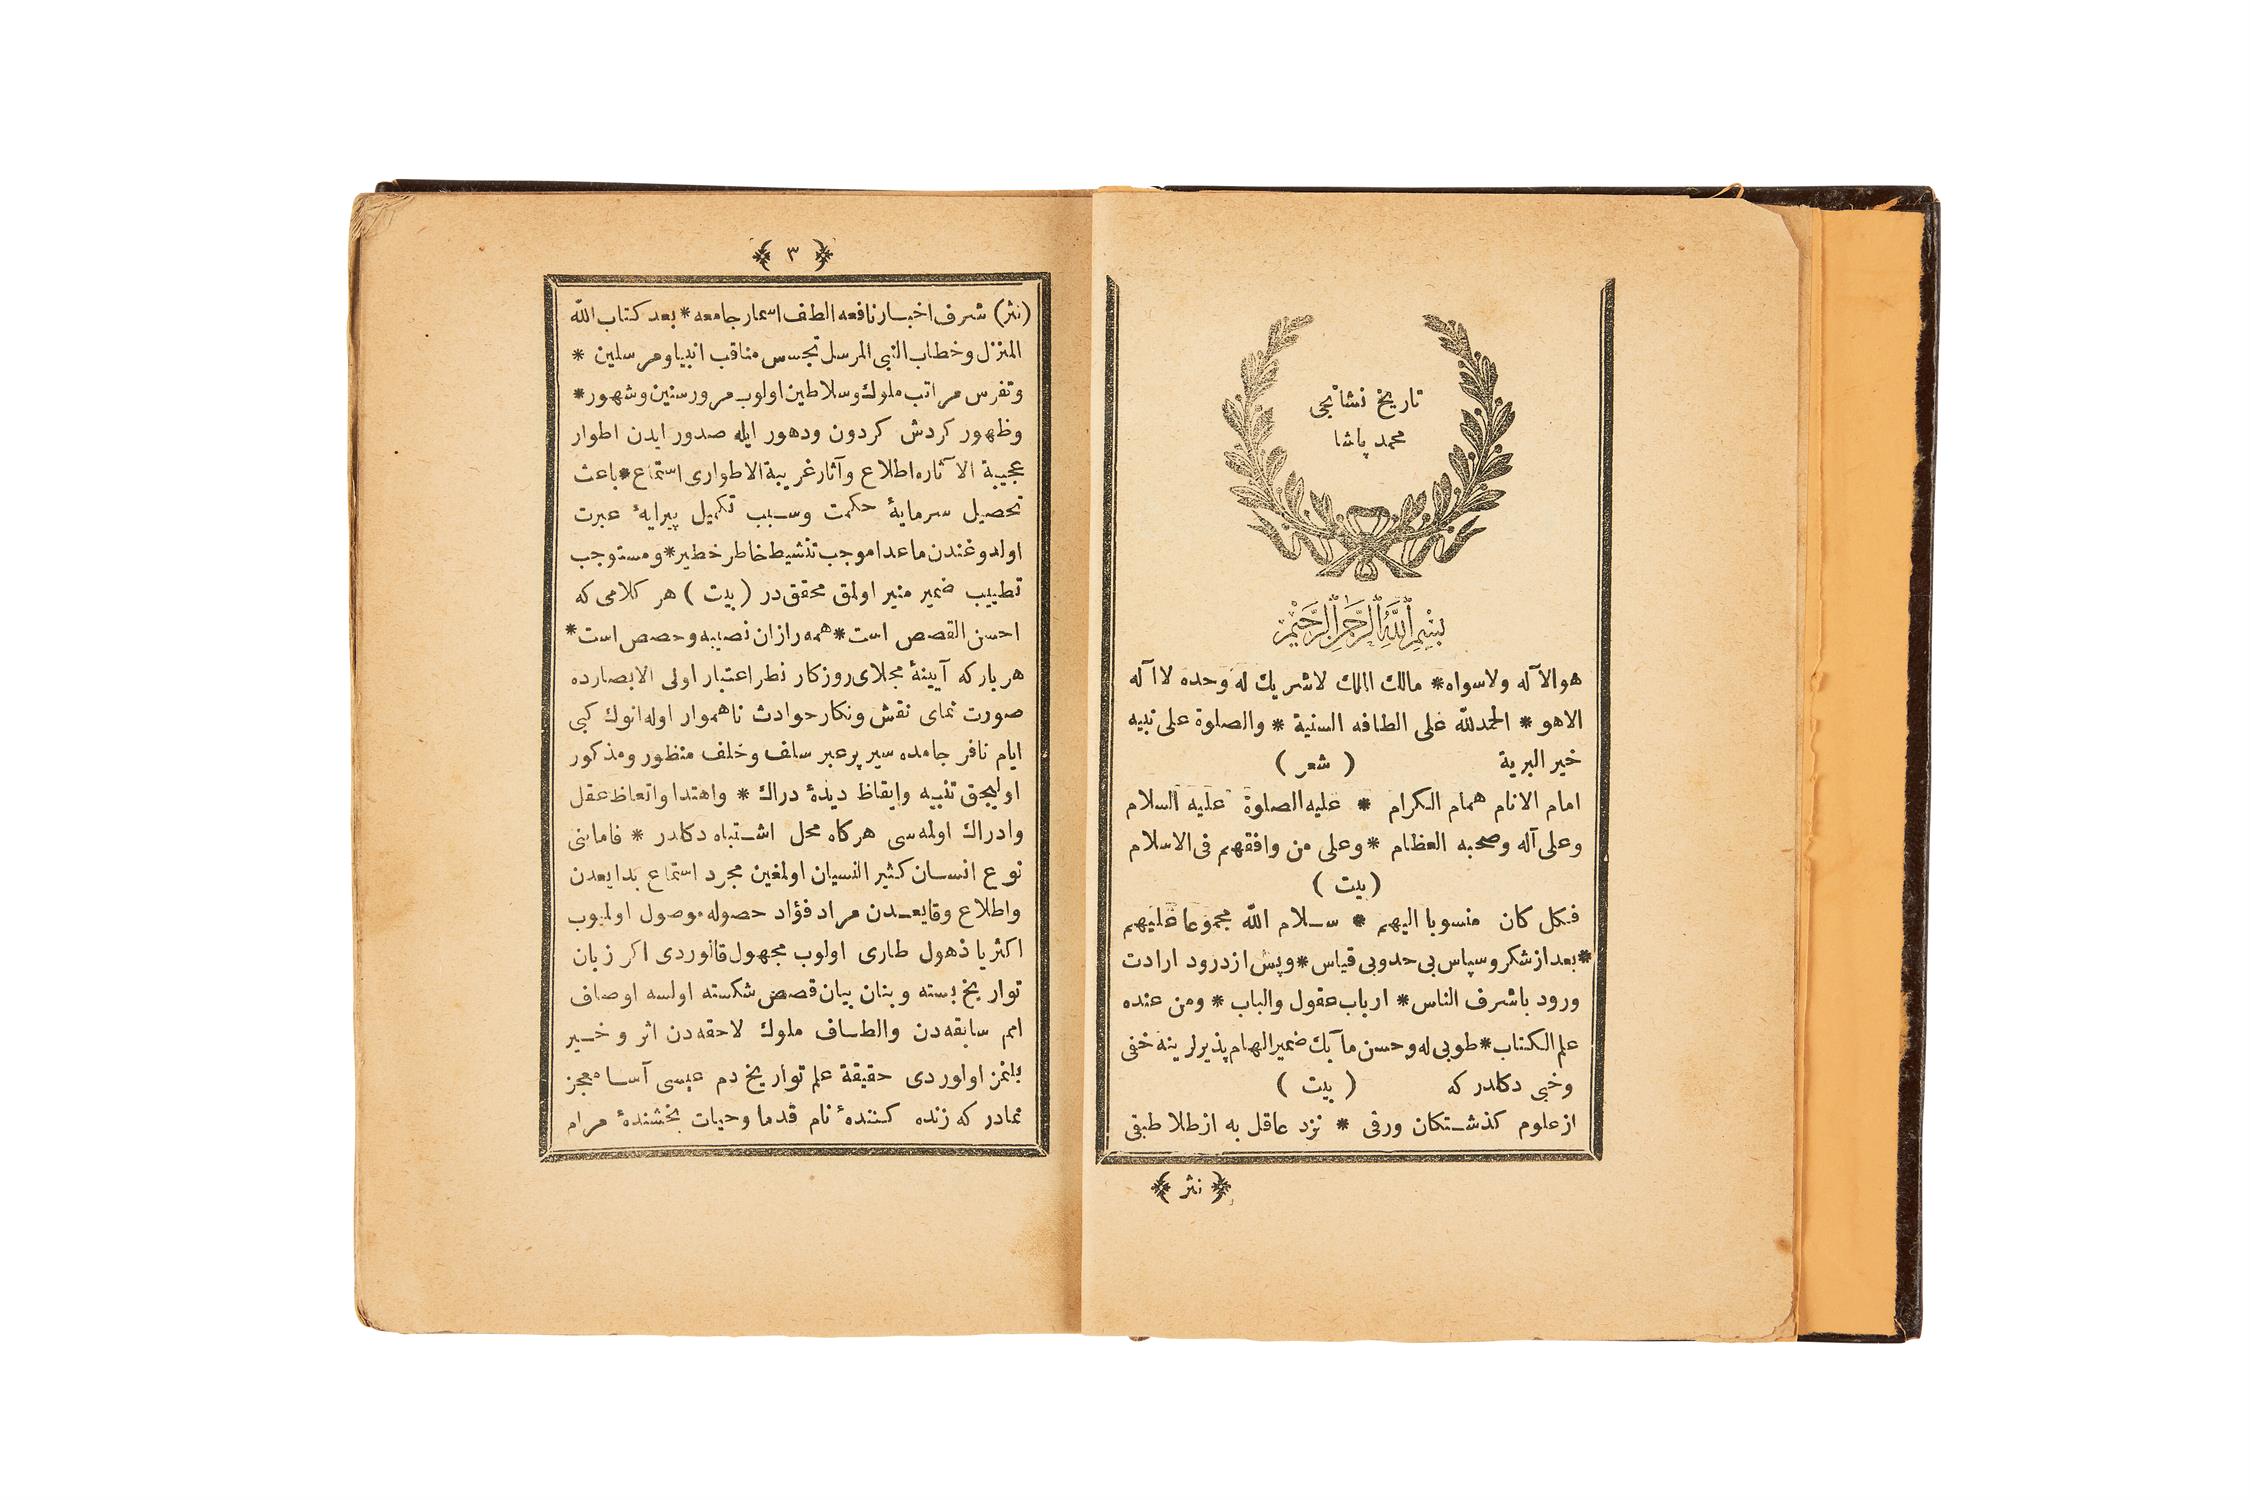 تاريخ نشانجی
محمد پاشا
بِسْمِ ٱللَّهِ ٱلرَّحْمٰنِ ٱلرَّحِيمِ
هو الاآله ولاسواه* مالك الملك لاشريك له وحده لاآله
الاهو * الحمدلله على الطافه السنية * والصلوة على نبيه
خير البرية ( شعر )
امام الانام همام الكرام * عليه الصلوة عليه السلام
وعلى آله وصحبه العظام * وعلى من وافقهم فى الاسلام
( بيت )
فكل كان منسوبا اليهم * سلام الله مجموعا عليهم
* بعد از شكر وسپاس بى حدوبى قياس * وپش از درود ارادت
ورود باشرف الناس * ارباب عقول والباب * ومن عنده
علم الكتاب * طوبى له وحسن مآبك ضمير الهام پذيرلرينه خفى
وخبى دكلدر كه ( بيت )
از علوم كذشتكان ورقى * نزد عاقل به از طلا طبقى
نثر
٣
(نثر) شرف اخبار نافعه الطف اسمار جامعه * بعد كتاب الله
المنزل وخطاب النبى المرسل تجسس مناقب انبيا ومرسلين *
وتفرس مراتب ملوك وسلاطين اولوب مرور سنين وشهور *
وظهور كردش كردون ودهور ايله صدور ايدن اطوار
عجيبة الآثاره اطلاع وآثار غريبة الاطوارى استماع * باعث
تحصيل سرمايهٔ حكمت وسبب تكميل پيرايهٔ عبرت
اولدوغندن ماعدا موجب تنشيط خاطر خطير * ومستوجب
تطييب ضمير منير اولمق محققدر ( بيت ) هر كلامى كه
احسن القصص است * همه را زان نصيبه وحصص است *
هربار كه آيينهٔ مجلاى روزكار نظر اعتبار اولى الابصارده
صورت نماى نقش ونكار حوادث ناهموار اوله انوك كبى
ايام نافرجامده سير پرعبر سلف وخلف منظور ومذكور
اوليجق تنبيه وايقاظ ديدهٔ دراك * واهتدا واتعاظ عقل
وادراك اولمه سى هركاه محل اشتباه دكلدر * فاما بنى
نوع انسان كثير النسيان اولمغين مجرد استماع بدايعدن
واطلاع وقايعدن مراد فؤاد حصوله موصول اولميوب
اكثريا ذهول طارى اولوب مجهول قالوردى اكر زبان
تواريخ بسته وبنان بيان قصص شكسته اولسه اوصاف
امم سابقه دن والطاف ملوك لاحقه دن اثر وخبر
بلنمز اولوردى حقيقة علم تواريخ دم عيسى آسا معجز
نمادر كه زنده كنندهٔ نام قدما وحيات بخشندهٔ مرام